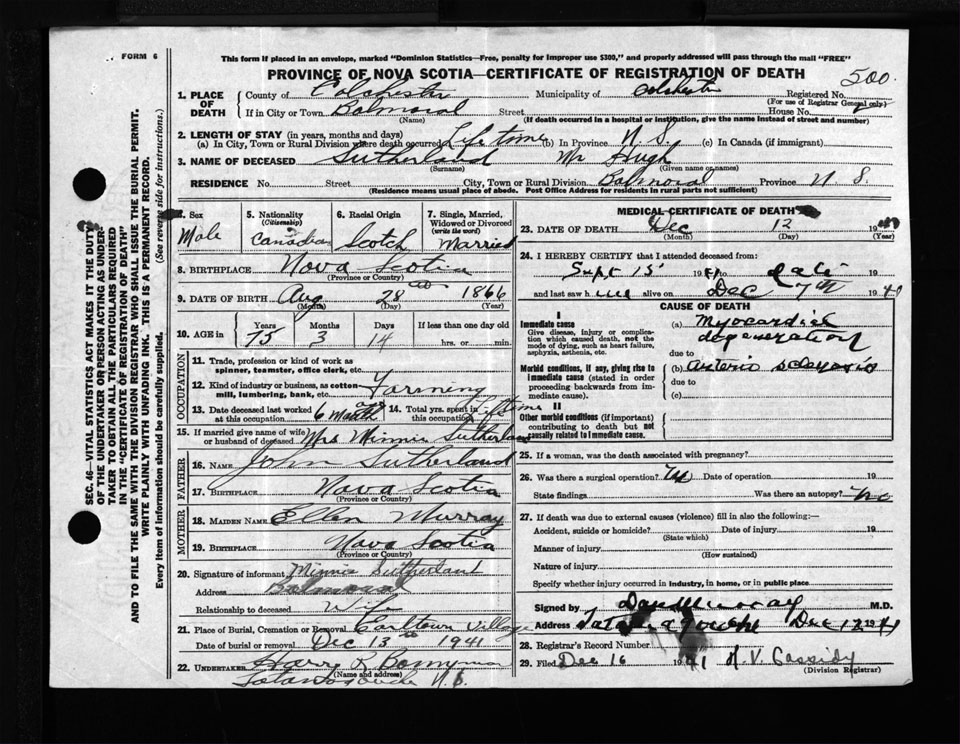 FORM 6
This form if placed in an envelope, marked "Dominion Statistics—Free, penalty for improper use $300," and properly addressed will pass through the mail "FREE"
PROVINCE OF NOVA SCOTIA—CERTIFICATE OF REGISTRATION OF DEATH
500
1. PLACE OF DEATH
County of Colchester Municipality of Colchester Registered No.
(For use of Registrar General only)
If in City or Town Balmoral Street House No.
(Name) (If death occurred in a hospital or institution, give the name instead of street and number)
2. LENGTH OF STAY (in years, months and days)
(a) In City, Town or Rural Division where death occurred Life time (b) In Province N. S. (c) In Canada (if immigrant)
3. NAME OF DECEASED Sutherland Mr Hugh
(Surname) (Given name or names)
RESIDENCE No. Street City, Town or Rural Division Balmoral Province N. S.
(Residence means usual place of abode. Post Office Address for residents in rural parts not sufficient)
4. Sex Male
5. Nationality (Citizenship) Canadian
6. Racial Origin Scotch
7. Single, Married, Widowed or Divorced (write the word) Married
8. BIRTHPLACE Nova Scotia
(Province or Country)
9. DATE OF BIRTH Aug 28 1866
(Month) (Day) (Year)
10. AGE in Years Months Days If less than one day old
75 3 14 hrs. or min.
OCCUPATION
11. Trade, profession or kind of work as spinner, teamster, office clerk, etc.
12. Kind of industry or business, as cotton mill, lumbering, bank, etc. Farming
13. Date deceased last worked at this occupation 6 months 14. Total yrs. spent in this occupation Lifetime
15. If married give name of wife or husband of deceased Mrs Minnie Sutherland
FATHER
16. NAME John Sutherland
17. BIRTHPLACE Nova Scotia
(Province or Country)
MOTHER
18. MAIDEN NAME Ellen Murray
19. BIRTHPLACE Nova Scotia
(Province or Country)
20. Signature of informant Minnie Sutherland
Address Balmoral
Relationship to deceased Wife
21. Place of Burial, Cremation or Removal Earltown Village
Date of burial or removal Dec 13th 1941
22. UNDERTAKER Harry
(Name and address)
N. S.
MEDICAL CERTIFICATE OF DEATH
23. DATE OF DEATH Dec 12 19
(Month) (Day) (Year)
24. I HEREBY CERTIFY that I attended deceased from:
Sept 15 1941 to date 19
and last saw him alive on Dec 7th 19
CAUSE OF DEATH
I
Immediate cause
Give disease, injury or complication which caused death, not the mode of dying, such as heart failure, asphyxia, asthenia, etc.
(a) Myocardial degeneration
due to
Morbid conditions, if any, giving rise to immediate cause (stated in order proceeding backwards from immediate cause).
(b) arterio sclerosis
due to
(c)
II
Other morbid conditions (if important) contributing to death but not causally related to immediate cause.
25. If a woman, was the death associated with pregnancy?
26. Was there a surgical operation? Date of operation 19
State findings Was there an autopsy? no
27. If death was due to external causes (violence) fill in also the following:—
Accident, suicide or homicide? Date of injury 19
(State which)
Manner of injury
(How sustained)
Nature of injury
Specify whether injury occurred in industry, in home, or in public place
Signed by Dan Murray M.D.
Address Tatamagouche Dec 12 1941
28. Registrar's Record Number
29. Filed Dec 16 1941 H. V. Cassidy
(Division Registrar)
SEC. 46—VITAL STATISTICS ACT MAKES IT THE DUTY
OF THE UNDERTAKER OR PERSON ACTING AS UNDERTAKER TO OBTAIN ALL THE PARTICULARS REQUIRED
IN THE "CERTIFICATE OF REGISTRATION OF DEATH"
AND TO FILE THE SAME WITH THE DIVISION REGISTRAR WHO SHALL ISSUE THE BURIAL PERMIT.
WRITE PLAINLY WITH UNFADING INK. THIS IS A PERMANENT RECORD.
Every item of information should be carefully supplied. (See reverse side for instructions.)